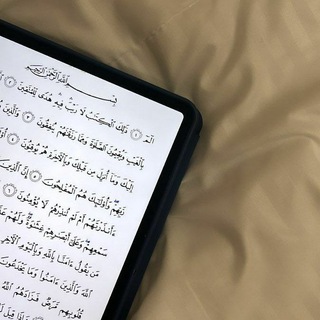 بِسْمِ اللَّهِ الرَّحْمَٰنِ الرَّحِيمِ
الٓمٓ ۝١ ذَٰلِكَ ٱلْكِتَٰبُ لَا رَيْبَ فِيهِ هُدًى لِّلْمُتَّقِينَ ۝٢
بِٱلْغَيْبِ وَيُقِيمُونَ ٱلصَّلَوٰةَ وَمِمَّا رَزَقْنَٰهُمْ يُنفِقُونَ ۝٣ وَٱلَّذِينَ
إِلَيْكَ وَمَآ أُنزِلَ مِن قَبْلِكَ وَبِٱلْأَخِرَةِ هُمْ يُوقِنُونَ ۝٤
رَّبِّهِمْ وَأُو۟لَٰٓئِكَ هُمُ ٱلْمُفْلِحُونَ ۝٥ إِنَّ ٱلَّذِينَ
ءَأَنذَرْتَهُمْ أَمْ لَمْ تُنذِرْهُمْ لَا يُؤْمِنُونَ ۝٦
سَمْعِهِمْ وَعَلَىٰٓ أَبْصَٰرِهِمْ غِشَٰوَةٌ وَلَهُمْ
مَن يَقُولُ ءَامَنَّا بِٱللَّهِ وَبِٱلْيَوْمِ ٱلْأَخِرِ
ٱللَّهَ وَٱلَّذِينَ ءَامَنُوا۟ وَمَا يَخْدَعُونَ
قُلُوبِهِم مَّرَضٌ فَزَادَهُمُ ٱللَّهُ
وَإِذَا قِيلَ